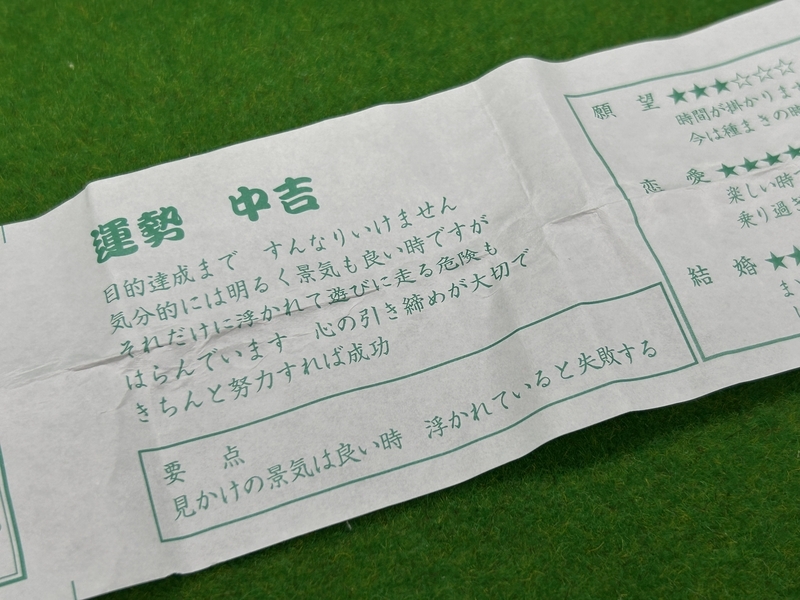 運勢 中吉
目的達成まで すんなりいけません
気分的には明るく景気も良い時ですが
それだけに浮かれて遊びに走る危険も
はらんでいます 心の引き締めが大切で
きちんと努力すれば成功
要点
見かけの景気は良い時 浮かれていると失敗する
願望 ★★★☆☆☆
時間が掛かりま
今は種まきの時
恋愛 ★★★★
楽しい時
乗り過ぎ
結婚 ★★